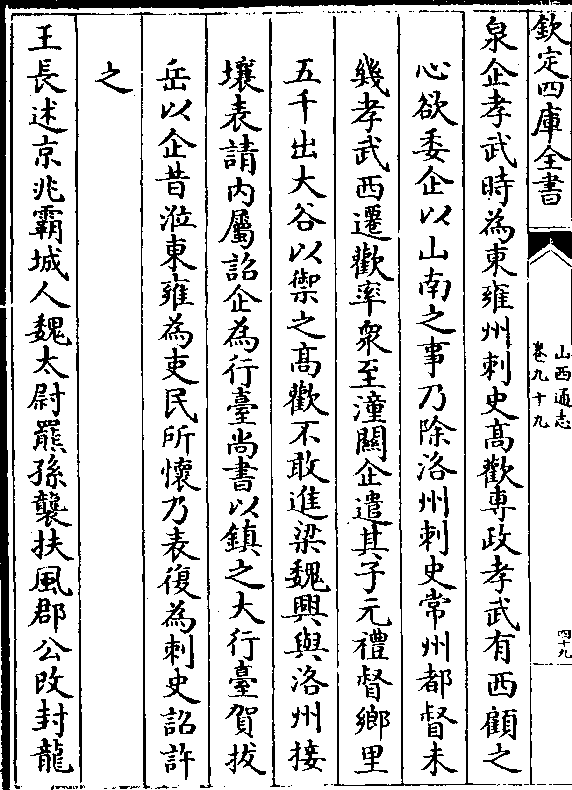 欽定四庫全書
山西通志
卷九十九
四十九
泉企孝武時為東雍州刺史髙歡専政孝武有西顧之
心欲委企以山南之事乃除洛州刺史常州都督未
幾孝武西遷歡率衆至潼闗企遣其子元禮督鄉里
五千出大谷以禦之髙歡不敢進梁魏興與洛州接
壤表請内屬詔企為行臺尚書以鎮之大行臺賀拔
岳以企昔涖東雍為吏民所懷乃表復為刺史詔許
之
王長述京兆霸城人魏太尉羆孫襲扶風郡公改封龍